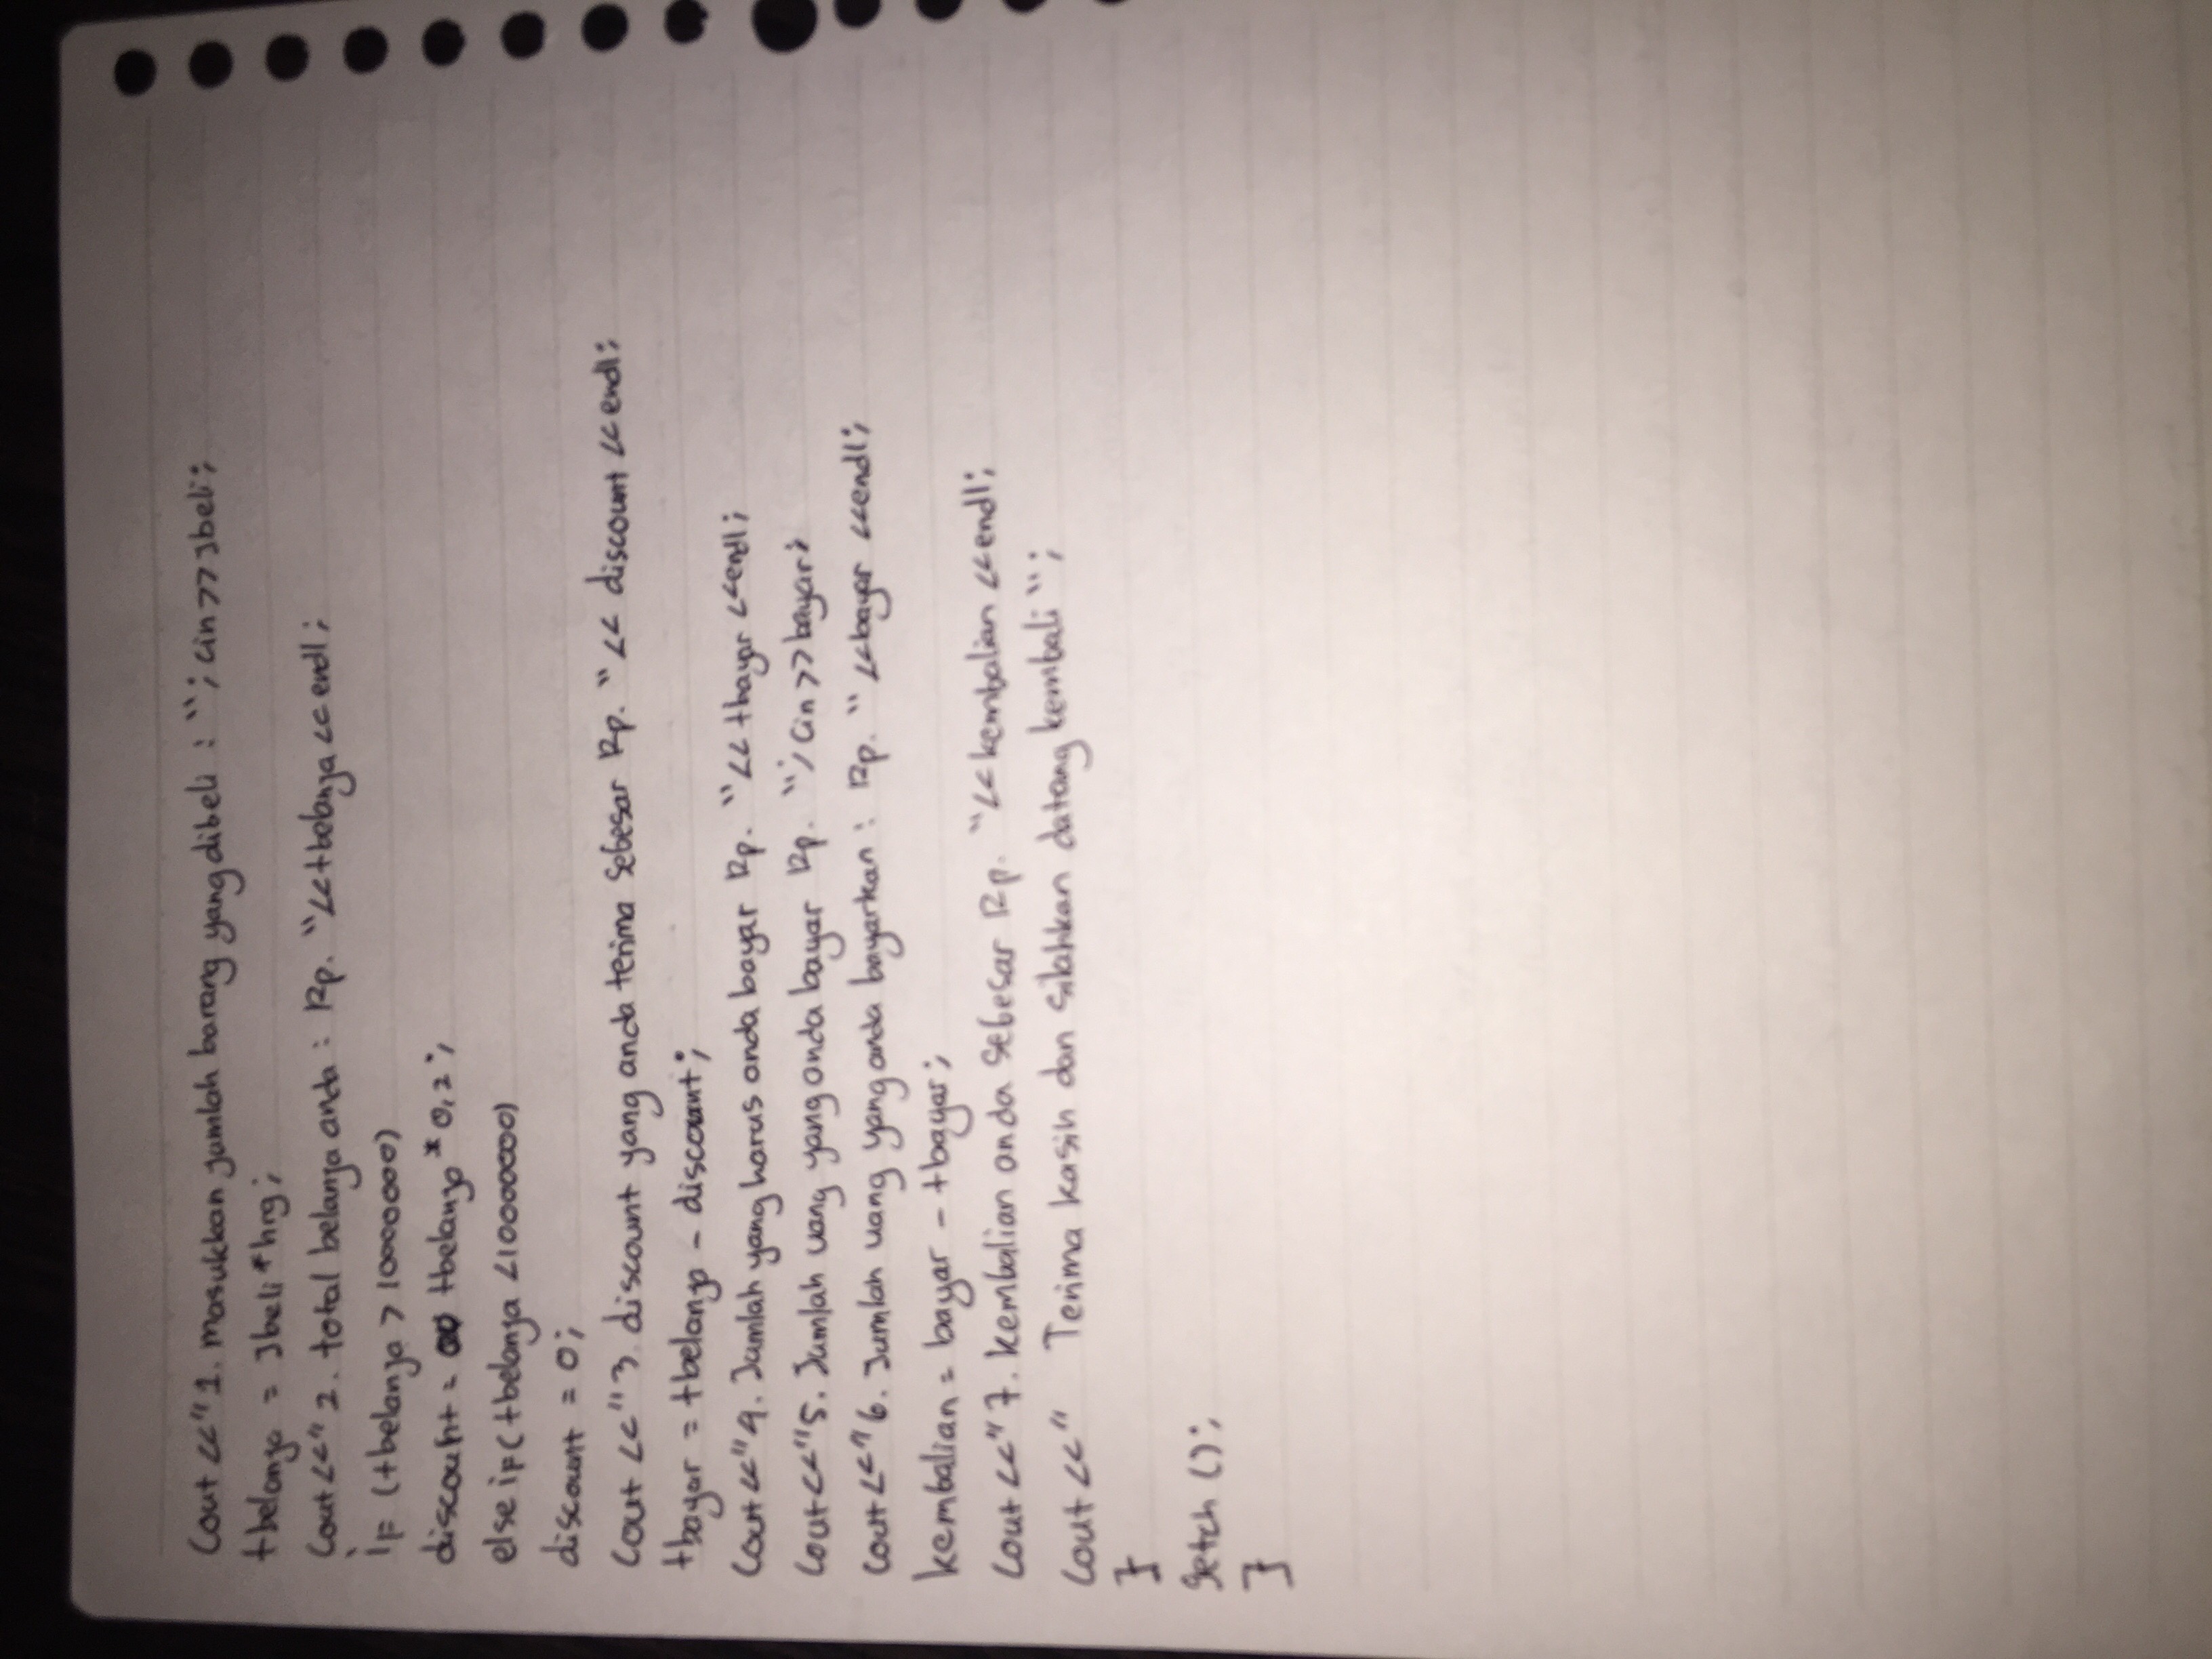 Cout <<" 1. masukkan jumlah barang yang dibeli : "; cin>>jbeli;
tbelanja = jbeli*hrg;
Cout<<" 2. total belanja anda : Rp. "<<tbelanja<<endl;
if (tbelanja > 10000000)
discount = tbelanja * 0,2;
else if(tbelanja <10000000)
discount = 0;
Cout <<"3. discount yang anda terima sebesar Rp. "<< discount <<endl;
tbayar = tbelanja - discount;
Cout<<"4. Jumlah yang harus anda bayar Rp. "<< tbayar <<endl;
Cout<<"5. Jumlah uang yang anda bayar Rp. "; cin>>bayar;
Cout<<"6. Jumlah uang yang anda bayarkan : Rp. " <<bayar <<endl;
kembalian = bayar - tbayar;
Cout <<"7. kembalian anda sebesar Rp. "<<kembalian <<endl;
Cout <<" Terima kasih dan silahkan datang kembali ";
}
getch ();
}